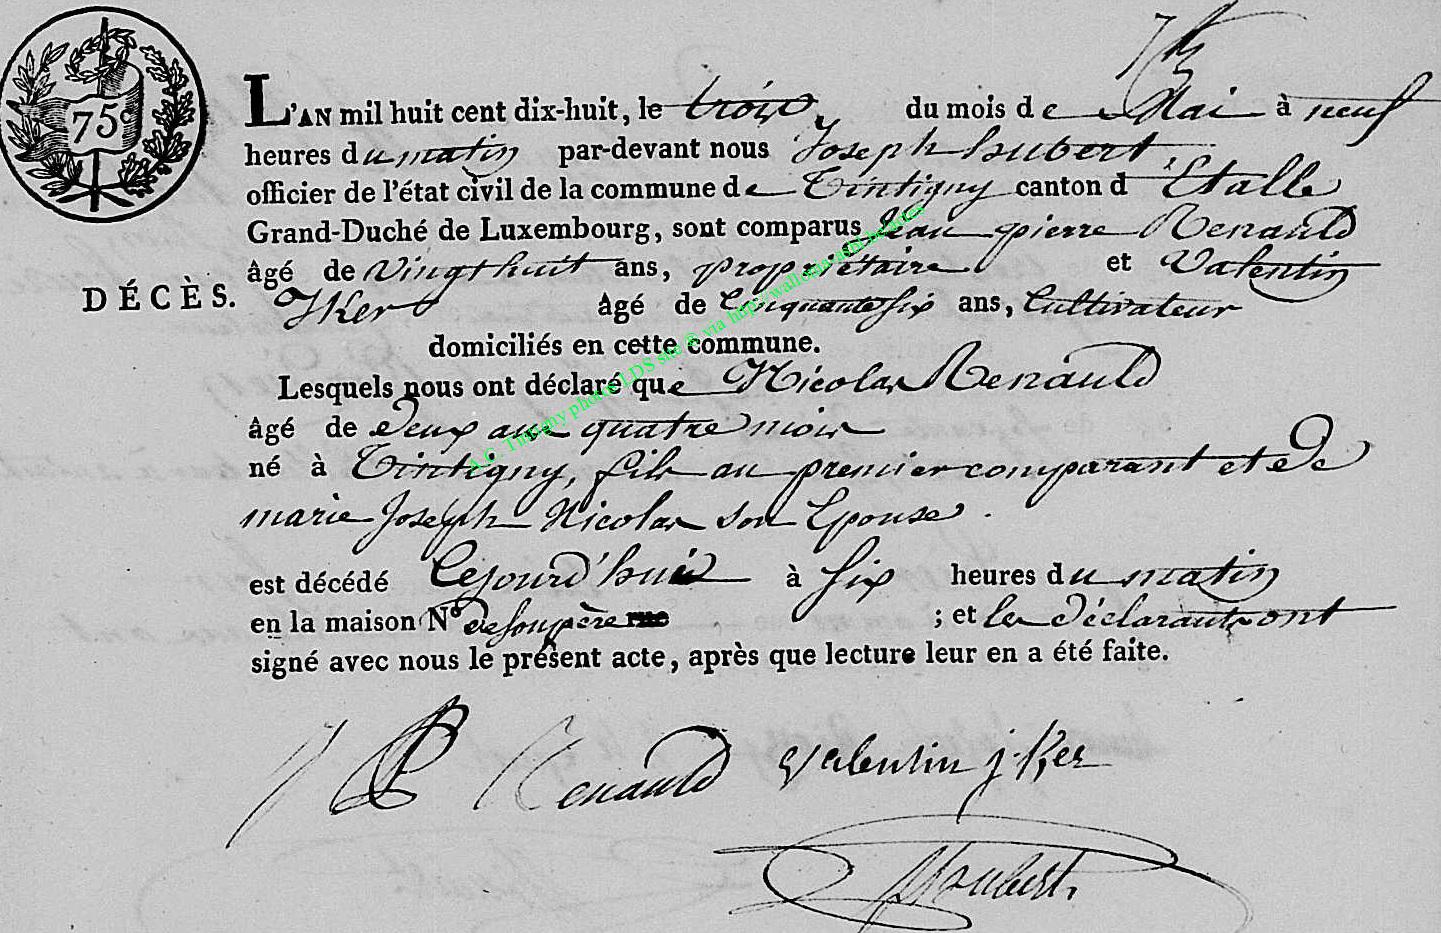 75c
L'AN mil huit cent dix-huit, le trois du mois de Mai à neuf
heures du matin par-devant nous Joseph hubert,
officier de l'état civil de la commune de Tintigny canton d'Etalle
Grand-Duché de Luxembourg, sont comparus Jean pierre Renauld
âgé de Vingt huit ans, propriétaire et Valentin
DÉCÈS.
Jker âgé de Cinquante Six ans, Cultivateur
domiciliés en cette commune.
Lesquels nous ont déclaré que Nicolas Renauld
âgé de Deux ans quatre mois
né à Tintigny, fils au premier comparant et de
marie Joseph Nicolas son Epouse.
est décédé Cejourd'huis à Six heures du matin
en la maison N° de son père rue ; et les déclarants ont
signé avec nous le présent acte, après que lecture leur en a été faite.
JP Renauld valentin jker
Jhubert
A.C. Tintigny photos LDS site © via http://wallonia-asbl.be/ardes